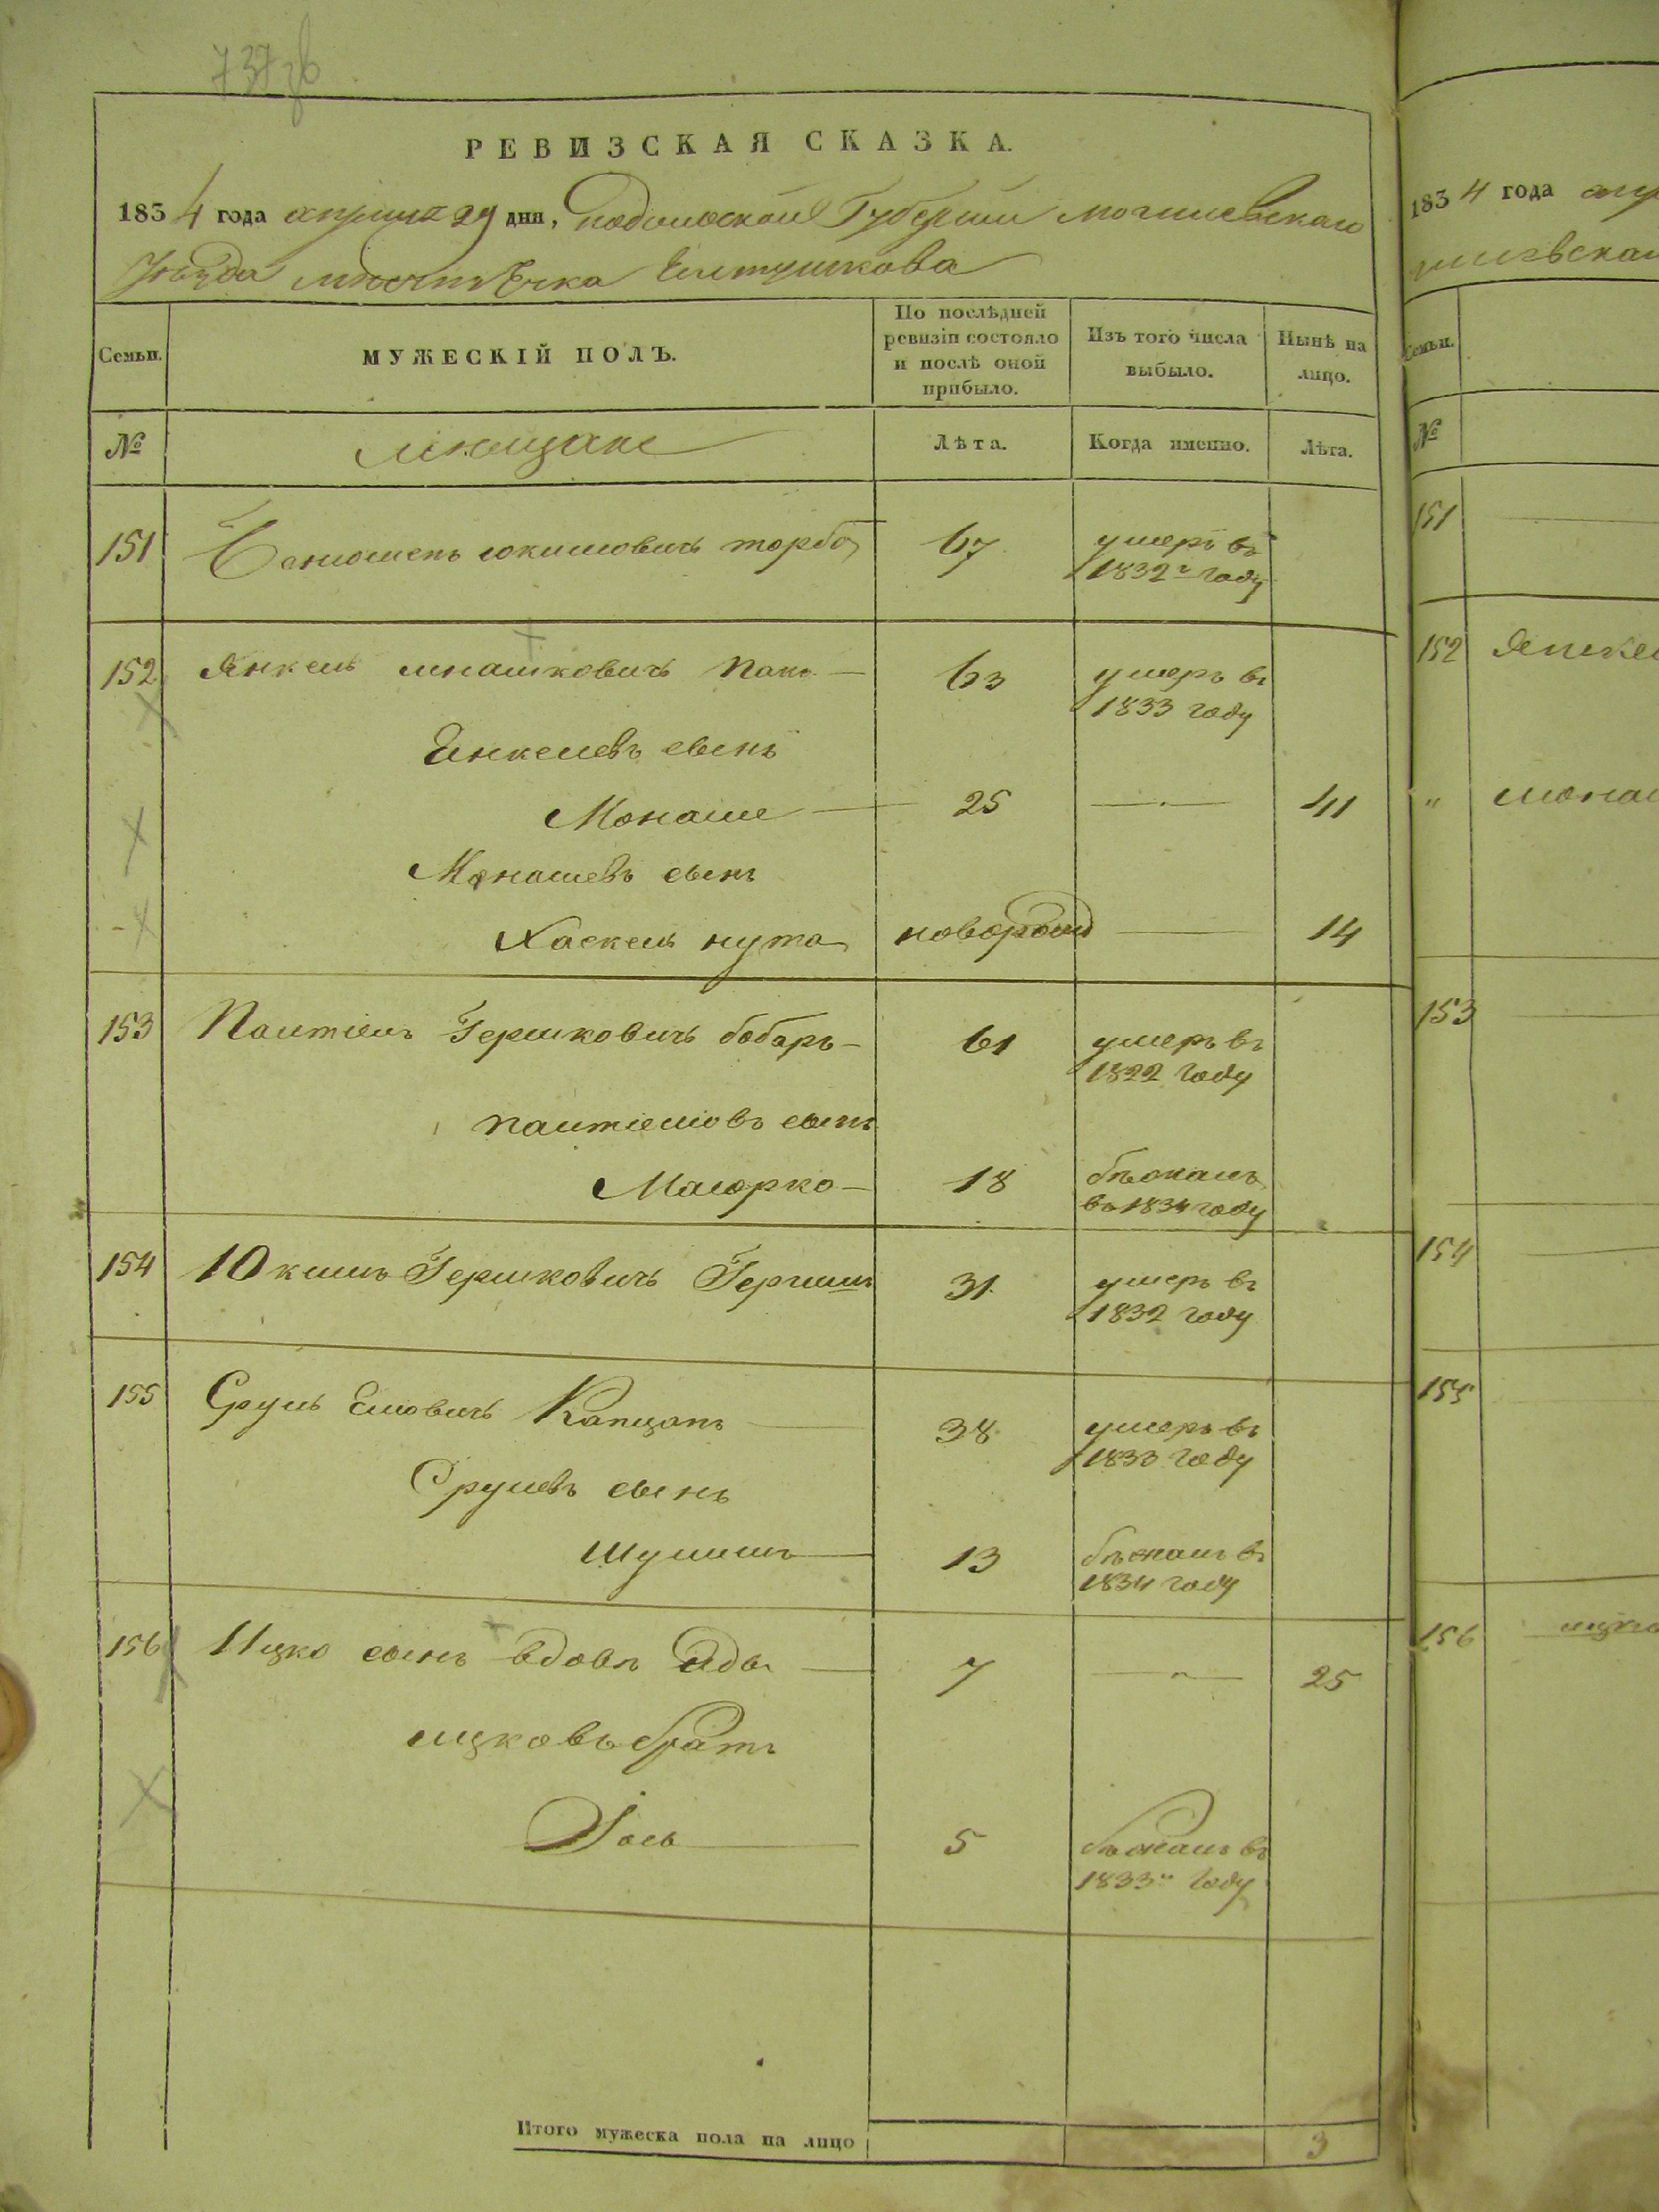 737 об
РЕВИЗСКАЯ СКАЗКА.
1834 года апреля 29 дня, Подольской Губернии Могилевскаго
Уѣзда мѣстѣчка Елтушкова
Семьи. МУЖЕСКІЙ ПОЛЪ. По послѣдней ревизіи состояло и послѣ оной прибыло. Изъ того числа выбыло. Нынѣ на лицо.
№ мѣщане Лѣта. Когда именно. Лѣта.
151 юкилювичъ торба 67 умеръ въ
1832г году
152 Янкель мнашковичъ 63 умеръ въ
1833 году
Енкелевъ сынъ
Монаше 25 41
Монашевъ сынъ
Хаскель нута новорожд 14
153 Палтіель Гершковичъ бобаръ 61 умеръ въ
1822 году
палтіеліовъ сынъ
Маіорко 18 бѣжалъ
въ 1834 году
154 Юкиль Гершковичъ 31 умеръ въ
1832 году
155 Сруль Еліовичъ Капцанъ 38 умеръ въ
1833 году
Срулевъ сынъ
Шулимъ 13 бѣжалъ въ
1834 году
156 Ицко сынъ вдовы 7 25
ицковъ братъ
Іось 5 бѣжалъ въ
1833 году
Итого мужеска пола на лицо 3
1834 года
Семьи.
№
151
152 Янкел
" монаш
153
154
155
156 ицко